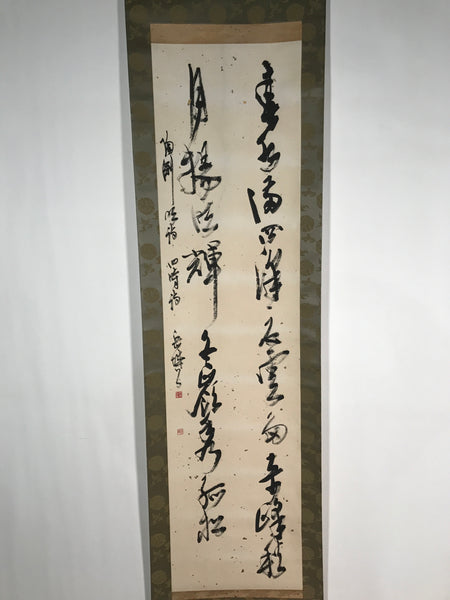 春水満四澤夏雲多奇峰秋
月揚明輝冬嶺秀孤松
陶淵明詩四時詩